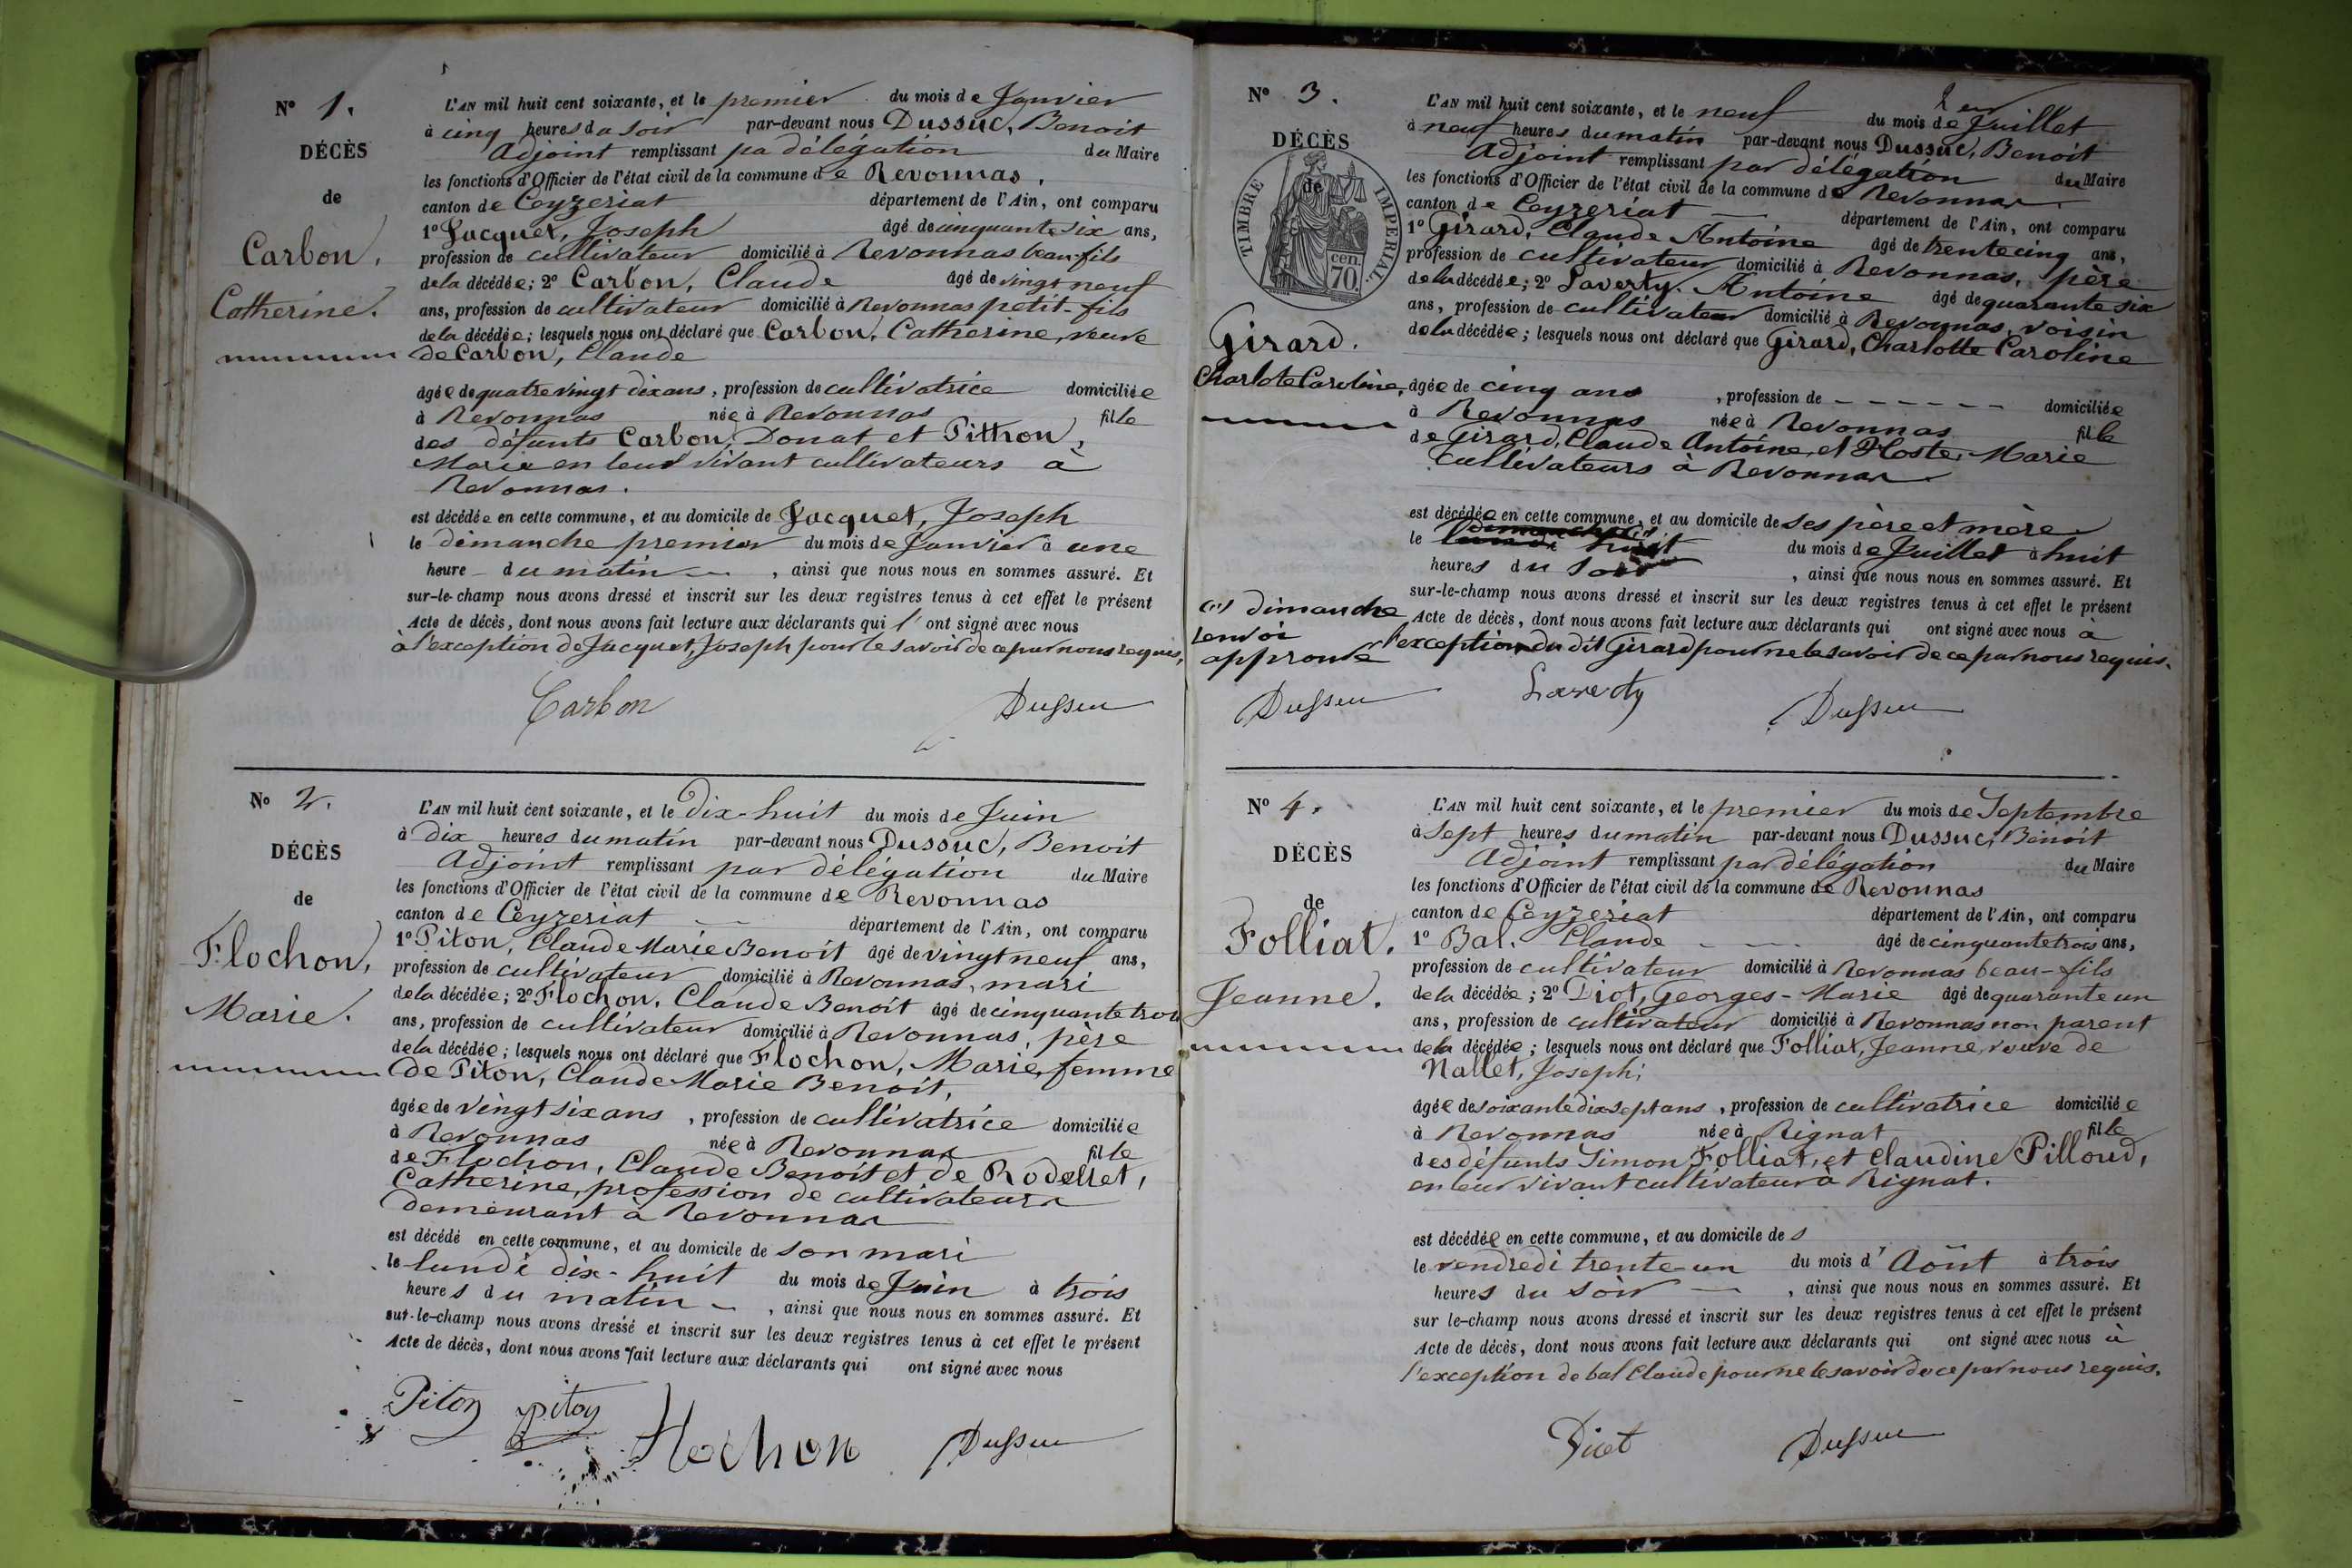 N° 1.
DÉCÈS
de
Carbon,
Catherine.
L'AN mil huit cent soixante, et le premier du mois de Janvier
à cinq heures du soir par-devant nous Dussuc, Benoit
Adjoint remplissant pa délégation du Maire
les fonctions d'Officier de l'état civil de la commune de Revonnas,
canton de Ceyzeriat département de l'Ain, ont comparu
1° Jacquet, Joseph âgé de cinquante six ans,
profession de cultivateur domicilié à Revonnas beau-fils
de la décédée; 2° Carbon, Claude âgé de vingt neuf
ans, profession de cultivateur domicilié à Revonnas petit-fils
de la décédée; lesquels nous ont déclaré que Carbon, Catherine, veuve
de Carbon, Claude
âgée de quatre vingt dix ans, profession de cultivatrice domiciliée
à Revonnas née à Revonnas fille
des défunts Carbon, Donat et Pittron,
Marie en leur vivant cultivateurs à
Revonnas.
est décédée en cette commune, et au domicile de Jacquet, Joseph
le dimanche premier du mois de Janvier à une
heure du matin, ainsi que nous nous en sommes assuré. Et
sur-le-champ nous avons dressé et inscrit sur les deux registres tenus à cet effet le présent
Acte de décès, dont nous avons fait lecture aux déclarants qui l' ont signé avec nous
à l'exception de Jacquet, Joseph pour le savoir de ce par nous requis,
Carbon Dussuc
N° 2.
DÉCÈS
de
Flochon,
Marie.
L'AN mil huit cent soixante, et le Dix-huit du mois de Juin
à dix heures du matin par-devant nous Dussuc, Benoit
Adjoint remplissant par délégation du Maire
les fonctions d'Officier de l'état civil de la commune de Revonnas
canton de Ceyzeriat département de l'Ain, ont comparu
1° Piton, Claude Marie Benoit âgé de vingt neuf ans,
profession de cultivateur domicilié à Revonnas, mari
de la décédée; 2° Flochon, Claude Benoit âgé de cinquante trois
ans, profession de cultivateur domicilié à Revonnas, père
de la décédée; lesquels nous ont déclaré que Flochon, Marie, femme
de Piton, Claude Marie Benoit,
âgée de vingt six ans, profession de cultivatrice domiciliée
à Revonnas née à Revonnas fille
de Flochon, Claude Benoit et de Rodellet,
Catherine, profession de cultivateurs
demeurant à Revonnas
est décédé en cette commune, et au domicile de son mari
le lundi dix-huit du mois de Juin à trois
heures du matin, ainsi que nous nous en sommes assuré. Et
sur-le-champ nous avons dressé et inscrit sur les deux registres tenus à cet effet le présent
Acte de décès, dont nous avons fait lecture aux déclarants qui ont signé avec nous
Piton piton Flochon Dussuc
N° 3.
DÉCÈS
TIMBRE IMPERIAL.
de
70 cen.
Girard.
Charlote Caroline,
L'AN mil huit cent soixante, et le neuf du mois de Juillet
à neuf heures du matin par-devant nous Dussuc, Benoit
Adjoint remplissant par délégation du Maire
les fonctions d'Officier de l'état civil de la commune de Revonnas
canton de Ceyzeriat département de l'Ain, ont comparu
1° Girard, Claude Antoine âgé de trente cinq ans,
profession de cultivateur domicilié à Revonnas, père
de la décédée; 2° Laverty, Antoine âgé de quarante six
ans, profession de cultivateur domicilié à Revonnas, voisin
de la décédée; lesquels nous ont déclaré que Girard, Charlotte Caroline
âgée de cinq ans, profession de - - - - - - domiciliée
à Revonnas née à Revonnas fille
de Girard, Claude Antoine, et Ploste, Marie
cultivateurs à Revonnas
est décédée en cette commune, et au domicile de ses père et mère
le huit du mois de Juillet à huit
heures du soir, ainsi que nous nous en sommes assuré. Et
sur-le-champ nous avons dressé et inscrit sur les deux registres tenus à cet effet le présent
Acte de décès, dont nous avons fait lecture aux déclarants qui ont signé avec nous à
l'exception du dit Girard pour ne le savoir de ce par nous requis.
(1) dimanche
renvoi
approuvé
Dussuc Laverty Dussuc
N° 4.
DÉCÈS
de
Folliat.
Jeanne.
L'AN mil huit cent soixante, et le premier du mois de Septembre
à sept heures du matin par-devant nous Dussuc, Benoit
Adjoint remplissant par délégation du Maire
les fonctions d'Officier de l'état civil de la commune de Revonnas
canton de Ceyzeriat département de l'Ain, ont comparu
1° Bal, Claude âgé de cinquante trois ans,
profession de cultivateur domicilié à Revonnas beau-fils
de la décédée; 2° Diot, Georges-Marie âgé de quarante un
ans, profession de cultivateur domicilié à Revonnas non parent
de la décédée; lesquels nous ont déclaré que Folliat, Jeanne, veuve de
Nallet, Joseph;
âgée de soixante dix sept ans, profession de cultivatrice domiciliée
à Revonnas née à Rignat fille
des défunts Simon Folliat, et Claudine Pilloud,
en leur vivant cultivateur à Rignat.
est décédée en cette commune, et au domicile de s
le vendredi trente-un du mois d' Août à trois
heures du soir, ainsi que nous nous en sommes assuré. Et
sur le-champ nous avons dressé et inscrit sur les deux registres tenus à cet effet le présent
Acte de décès, dont nous avons fait lecture aux déclarants qui ont signé avec nous à
l'exception de bal Claude pour ne le savoir de ce par nous requis.
Diot Dussuc